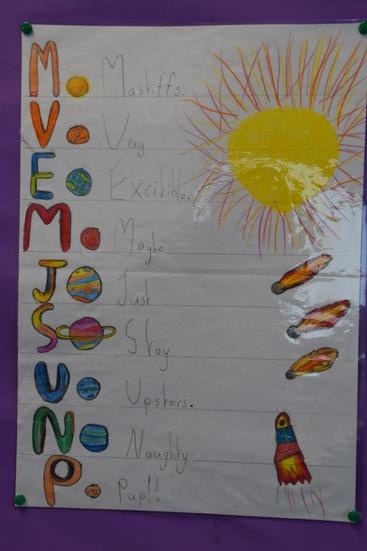 M. Mastiffs.
V. Very
E. Excitible.
M. Maybe
J Just
S Stay
U. Upstairs.
N Naughty
P. Pup!!